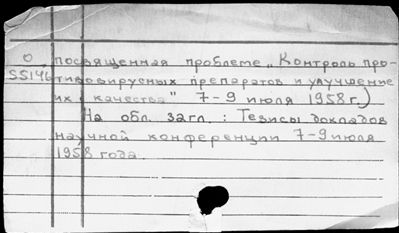 О посвященная проблеме „Контроль про-
55146 тивовирусных препаратов и улучшение
их качества" 7-9 июля 1958 г.)
На обл. загл.: Тезисы докладов
научной конференции 7-9 июля
1958 года.